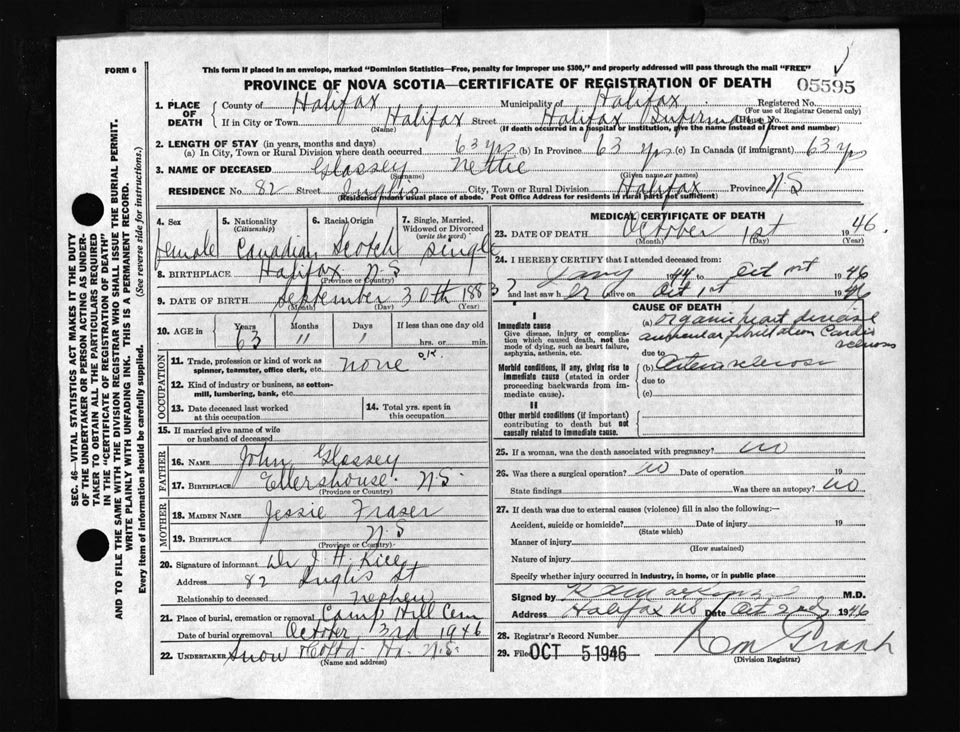 FORM 6
This form if placed in an envelope, marked "Dominion Statistics—Free, penalty for improper use $300," and properly addressed will pass through the mail "FREE"
PROVINCE OF NOVA SCOTIA—CERTIFICATE OF REGISTRATION OF DEATH
05595
1. PLACE OF DEATH
County of Halifax Municipality of Halifax Registered No.
(For use of Registrar General only)
If in City or Town Halifax Street Halifax Infirmary House No.
(Name) (If death occurred in a hospital or institution, give the name instead of street and number)
2. LENGTH OF STAY (in years, months and days)
(a) In City, Town or Rural Division where death occurred 63 yrs (b) In Province 63 yrs (c) In Canada (if immigrant) 63 yrs
3. NAME OF DECEASED Glassey Nettie
(Surname) (Given name or names)
RESIDENCE No. 82 Street Inglis City, Town or Rural Division Halifax Province N.S
(Residence means usual place of abode. Post Office Address for residents in rural parts not sufficient)
4. Sex female
5. Nationality (Citizenship) Canadian
6. Racial Origin Scotch
7. Single, Married, Widowed or Divorced (write the word) Single
8. BIRTHPLACE Halifax N.S
(Province or Country)
9. DATE OF BIRTH September 30th 1883
(Month) (Day) (Year)
10. AGE in Years 63 Months " Days " If less than one day old
hrs. or min.
OCCUPATION
11. Trade, profession or kind of work as spinner, teamster, office clerk, etc. none O.K.
12. Kind of industry or business, as cotton-mill, lumbering, bank, etc.
13. Date deceased last worked at this occupation
14. Total yrs. spent in this occupation
15. If married give name of wife or husband of deceased
FATHER
16. NAME John Glassey
17. BIRTHPLACE Ellershouse N.S.
(Province or Country)
MOTHER
18. MAIDEN NAME Jessie Fraser
19. BIRTHPLACE N.S
(Province or Country)
20. Signature of informant J. H. Rice
Address 82 Inglis St
Relationship to deceased nephew
21. Place of burial, cremation or removal Camp Hill Cem
Date of burial or removal October 3rd 1946
22. UNDERTAKER Snow & Co Ltd. Hx. N.S.
(Name and address)
MEDICAL CERTIFICATE OF DEATH
23. DATE OF DEATH October 1st 1946.
(Month) (Day) (Year)
24. I HEREBY CERTIFY that I attended deceased from:
Jany 1944 to Oct 1st 1946
and last saw her alive on Oct 1st 1946
CAUSE OF DEATH
I
Immediate cause
Give disease, injury or complication which caused death, not the mode of dying, such as heart failure, asphyxia, asthenia, etc.
(a) organic heart disease
auricular fibrillation Cardio
sclerosis
due to
Morbid conditions, if any, giving rise to immediate cause (stated in order proceeding backwards from immediate cause).
(b) Arteriosclerosis
due to
(c)
II
Other morbid conditions (if important) contributing to death but not causally related to immediate cause.
25. If a woman, was the death associated with pregnancy? no
26. Was there a surgical operation? no Date of operation 19
State findings Was there an autopsy? no
27. If death was due to external causes (violence) fill in also the following:—
Accident, suicide or homicide? Date of injury 19
(State which)
Manner of injury
(How sustained)
Nature of injury
Specify whether injury occurred in industry, in home, or in public place
Signed by M.D.
Address Halifax NS Date Oct 2nd 1946
28. Registrar's Record Number
29. Filed OCT 5 1946
(Division Registrar)
SEC. 46—VITAL STATISTICS ACT MAKES IT THE DUTY
OF THE UNDERTAKER OR PERSON ACTING AS UNDER-
TAKER TO OBTAIN ALL THE PARTICULARS REQUIRED
IN THE "CERTIFICATE OF REGISTRATION OF DEATH"
AND TO FILE THE SAME WITH THE DIVISION REGISTRAR WHO SHALL ISSUE THE BURIAL PERMIT.
WRITE PLAINLY WITH UNFADING INK. THIS IS A PERMANENT RECORD.
Every item of information should be carefully supplied. (See reverse side for instructions.)